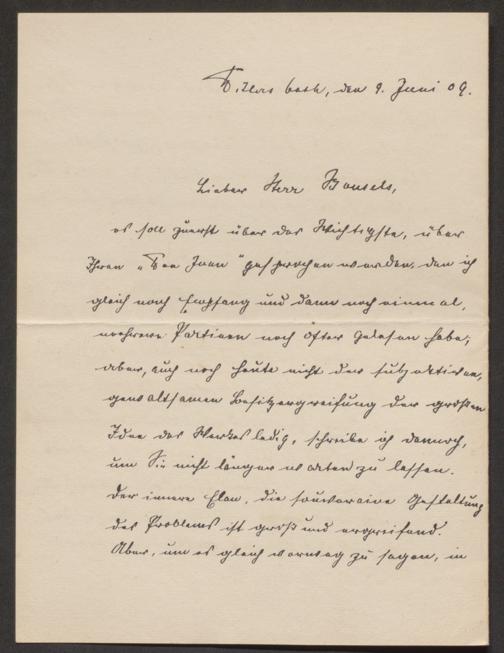 Dilborath, den 9. Juni 09.
Lieber Herr Bonsels,
es soll zuerst über das Wichtigste, über
Ihren "Don Juan" gesprochen werden, den ich
gleich nach Empfang und dann noch einmal,
mehrere Partieen noch öfter gelesen habe;
aber, auch noch heute nicht der subjektiven,
gewaltsamen Besitzergreifung der großen
Idee des Werkes ledig, schreibe ich dennoch,
um Sie nicht länger warten zu lassen.
Der innere Elan, die souveraine Gestaltung
des Problems ist groß und ergreifend.
Aber, um es gleich vorweg zu sagen, in